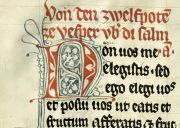 Von den zwelfpote
ze vesper vb di salm
Non uos me a
elegistis · sed
ego elegi uos
et posui uos ut eatis et
fructum afferatis & fruc